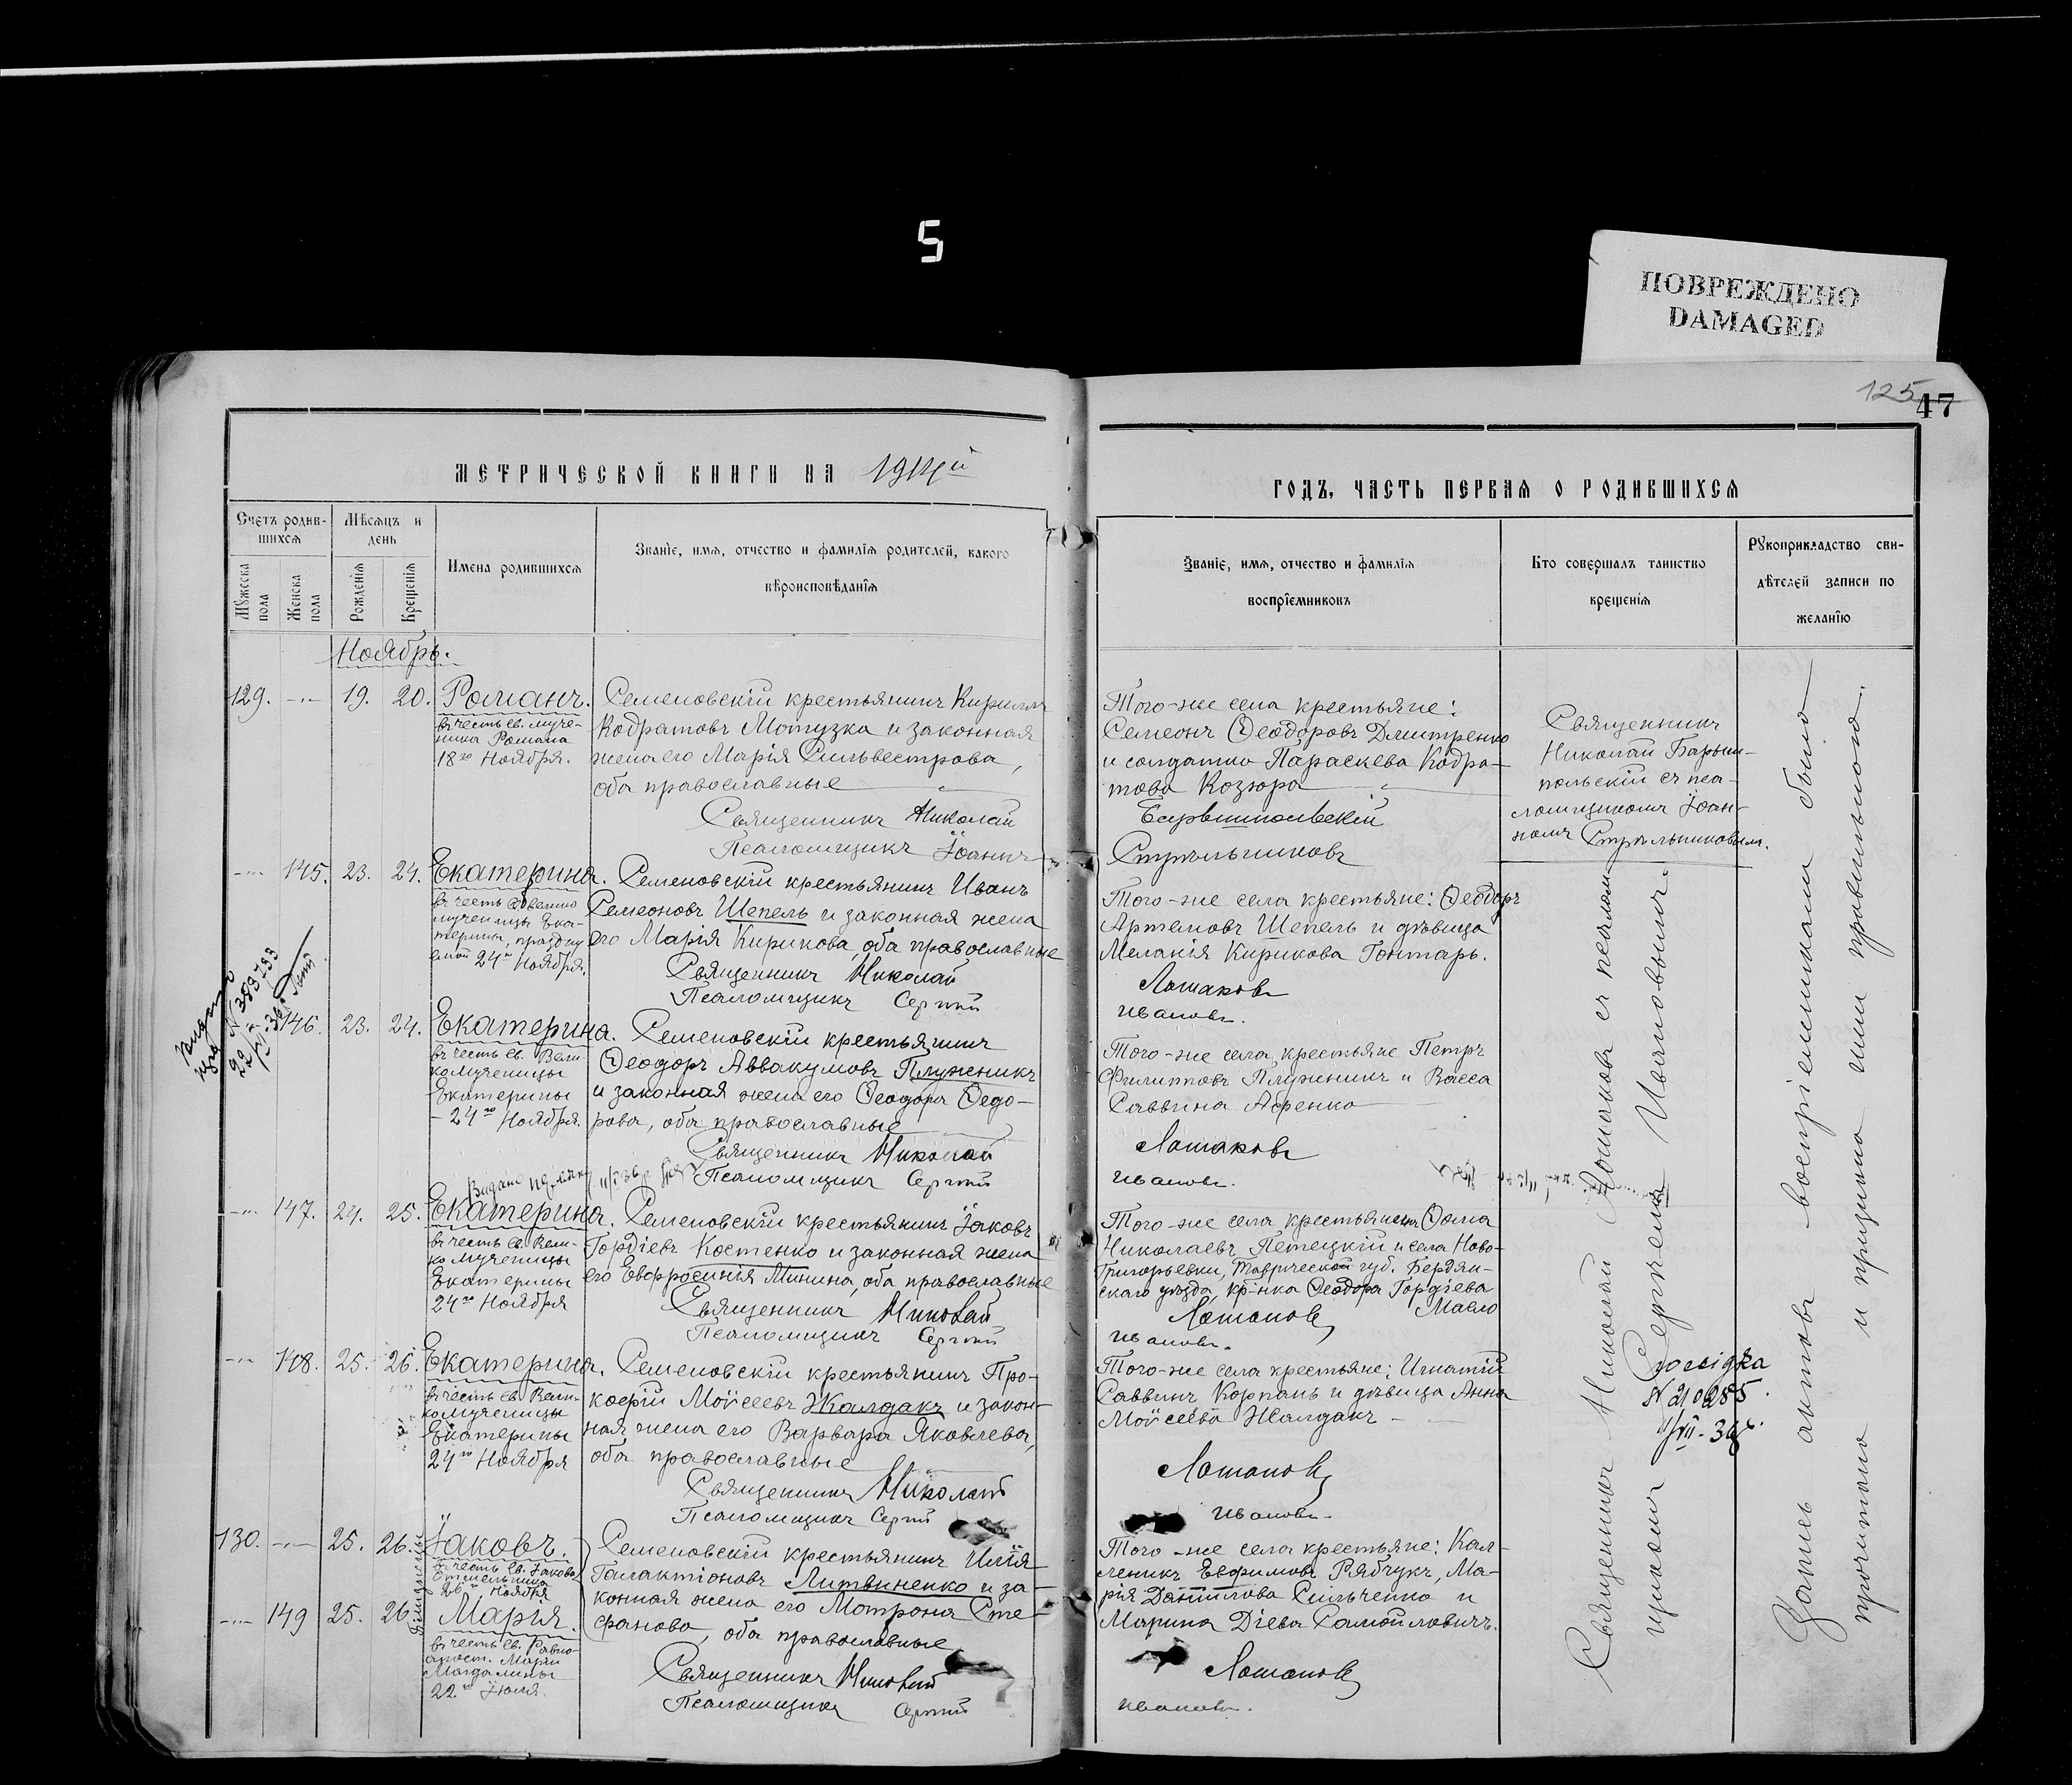 5
ПОВРЕЖДЕНО
DAMAGED
125
47
МЕТРИЧЕСКОЙ КНИГИ НА 1914й
ГОДЪ, ЧАСТЬ ПЕРВАЯ О РОДИВШИХСЯ
Счетъ родив-
шихся
Мѣсяцъ и
день
Имена родившихся
Званіе, имя, отчество и фамилія родителей, какого
вѣроисповѣданія
Мужеска
пола
Женска
пола
Рожденія
Крещенія
Званіе, имя, отчество и фамилія
воспріемниковъ
Кто совершалъ таинство
крещенія
Рукоприкладство сви-
дѣтелей записи по
желанію
Ноябрь.
129. 19. 20. Романъ.
въ честь св. муче-
ника Романа
18го Ноября.
Семеновскій крестьянинъ Кириллъ
Кодратовъ Мотузка и законная
жена его Марія Сильвестрова,
оба православные
Священникъ Николай
Псаломщикъ Іоаннъ
Того-же села крестьяне:
Семеонъ Ѳеодоровъ Дмитренко
и солдатка Параскева Кодра-
това Козюра
Барышпольскій
Стрѣльниковъ
Священникъ
Николай Барыш-
польскій съ пса-
ломщикомъ Іоан-
номъ Стрѣльниковымъ.
145. 23. 24. Екатерина.
въ честь св. велико
мученицы Ека-
терины, праздну
емой 24го Ноября.
Семеновскій крестьянинъ Иванъ
Семеоновъ Шепель и законная жена
его Марія Кирикова, оба православные
Священникъ Николай
Псаломщикъ Сергій
Того-же села крестьяне: Ѳеодоръ
Артемовъ Шепель и дѣвица
Меланія Кирикова Гонтарь.
Лошаковъ
Ивановъ.
Видано
N 383733
146. 23. 24. Екатерина.
въ честь св. Вели
комученицы
Екатерины
24го Ноября.
Семеновскій крестьянинъ
Ѳеодоръ Аввакумовъ Плужникъ
и законная жена его Ѳеодора Ѳедо-
рова, оба православные
Священникъ Николай
Псаломщикъ Сергій
Того-же села крестьяне Петръ
Филипповъ Плужникъ и Васса
Саввина
Лошаковъ
Ивановъ.
Видано
147. 24. 25. Екатерина.
въ честь св. Вели-
комученицы
Екатерины
24го Ноября
Семеновскій крестьянинъ Іаковъ
Гордіевъ Костенко и законная жена
его Евфросинія Минина, оба православные
Священникъ Николай
Псаломщикъ Сергій
Того-же села крестьянинъ Ѳома
Николаевъ Петецкій и села Ново-
Григорьевки, Таврической губ. Бердян-
скаго уѣзда, кр-нка Ѳеодора Гордіева
Мавло
Лошаковъ
Ивановъ.
148. 25. 26. Екатерина.
въ честь св. Вели-
комученицы
Екатерины
24го Ноября
Семеновскій крестьянинъ Про-
кофій Моѵсеевъ Жалдакъ и закон-
ная жена его Варвара Яковлева,
оба православные
Священникъ Николай
Псаломщикъ Сергій
Того-же села крестьяне: Игнатій
Саввинъ Корпань и дѣвица Анна
Моѵсеева Жалдакъ
Лошаковъ
Ивановъ.
N 210285.
130. 25. 26. Іаковъ.
въ честь св. Іакова
Отшельника
26го Ноября
149 25. 26. Марія.
въ честь св. Равно-
апост. Маріи
Магдалины
22го Іюля.
Близнецы
Семеновскій крестьянинъ Илія
Галактіоновъ Литвиненко и за-
конная жена его Мотрона Сте-
фанова, оба православные
Священникъ Николай
Псаломщикъ Сергій
Того-же села крестьяне: Кал-
леникъ Евфимовъ Рябчукъ, Ма-
рія Даніилова Сильченко и
Марина Діева Самойловичъ.
Лошаковъ
Ивановъ.
Священникъ Николай Лошаковъ съ псалом-
щикомъ Сергіемъ Ивановымъ.
Запись актовъ воспріемниками была
прочитана и признана ими правильною.